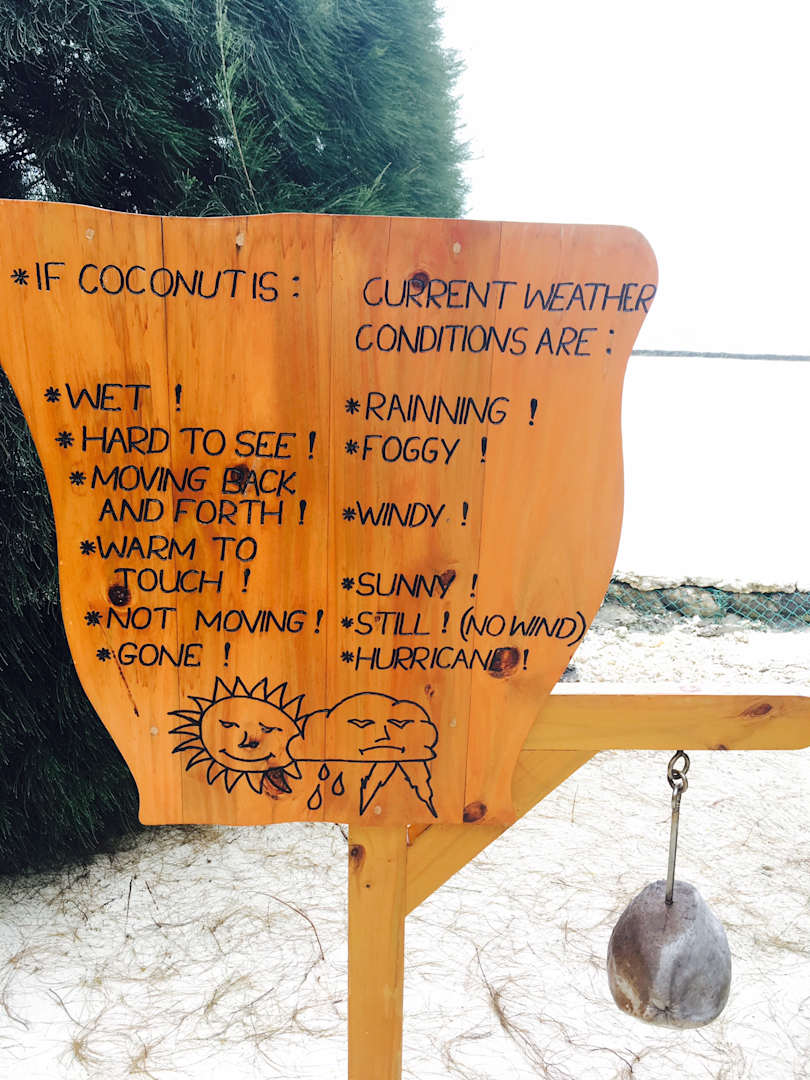 *IF COCONUT IS :
*WET !
*HARD TO SEE !
*MOVING BACK
AND FORTH !
*WARM TO
TOUCH !
*NOT MOVING !
*GONE !
CURRENT WEATHER
CONDITIONS ARE :
*RAINNING !
*FOGGY !
*WINDY !
*SUNNY !
*STILL ! (NO WIND)
*HURRICANE !